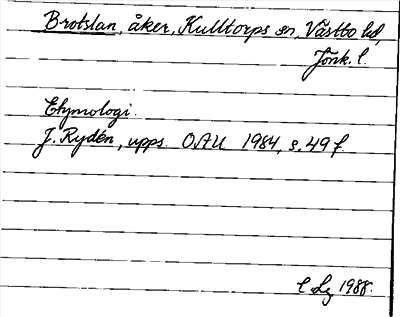 Brotslan, åker, Kulltorps sn, Västbo hd,
Jönk. l.
Etymologi.
J. Rydén, upps. OAU 1984, s. 49 f.
1988.